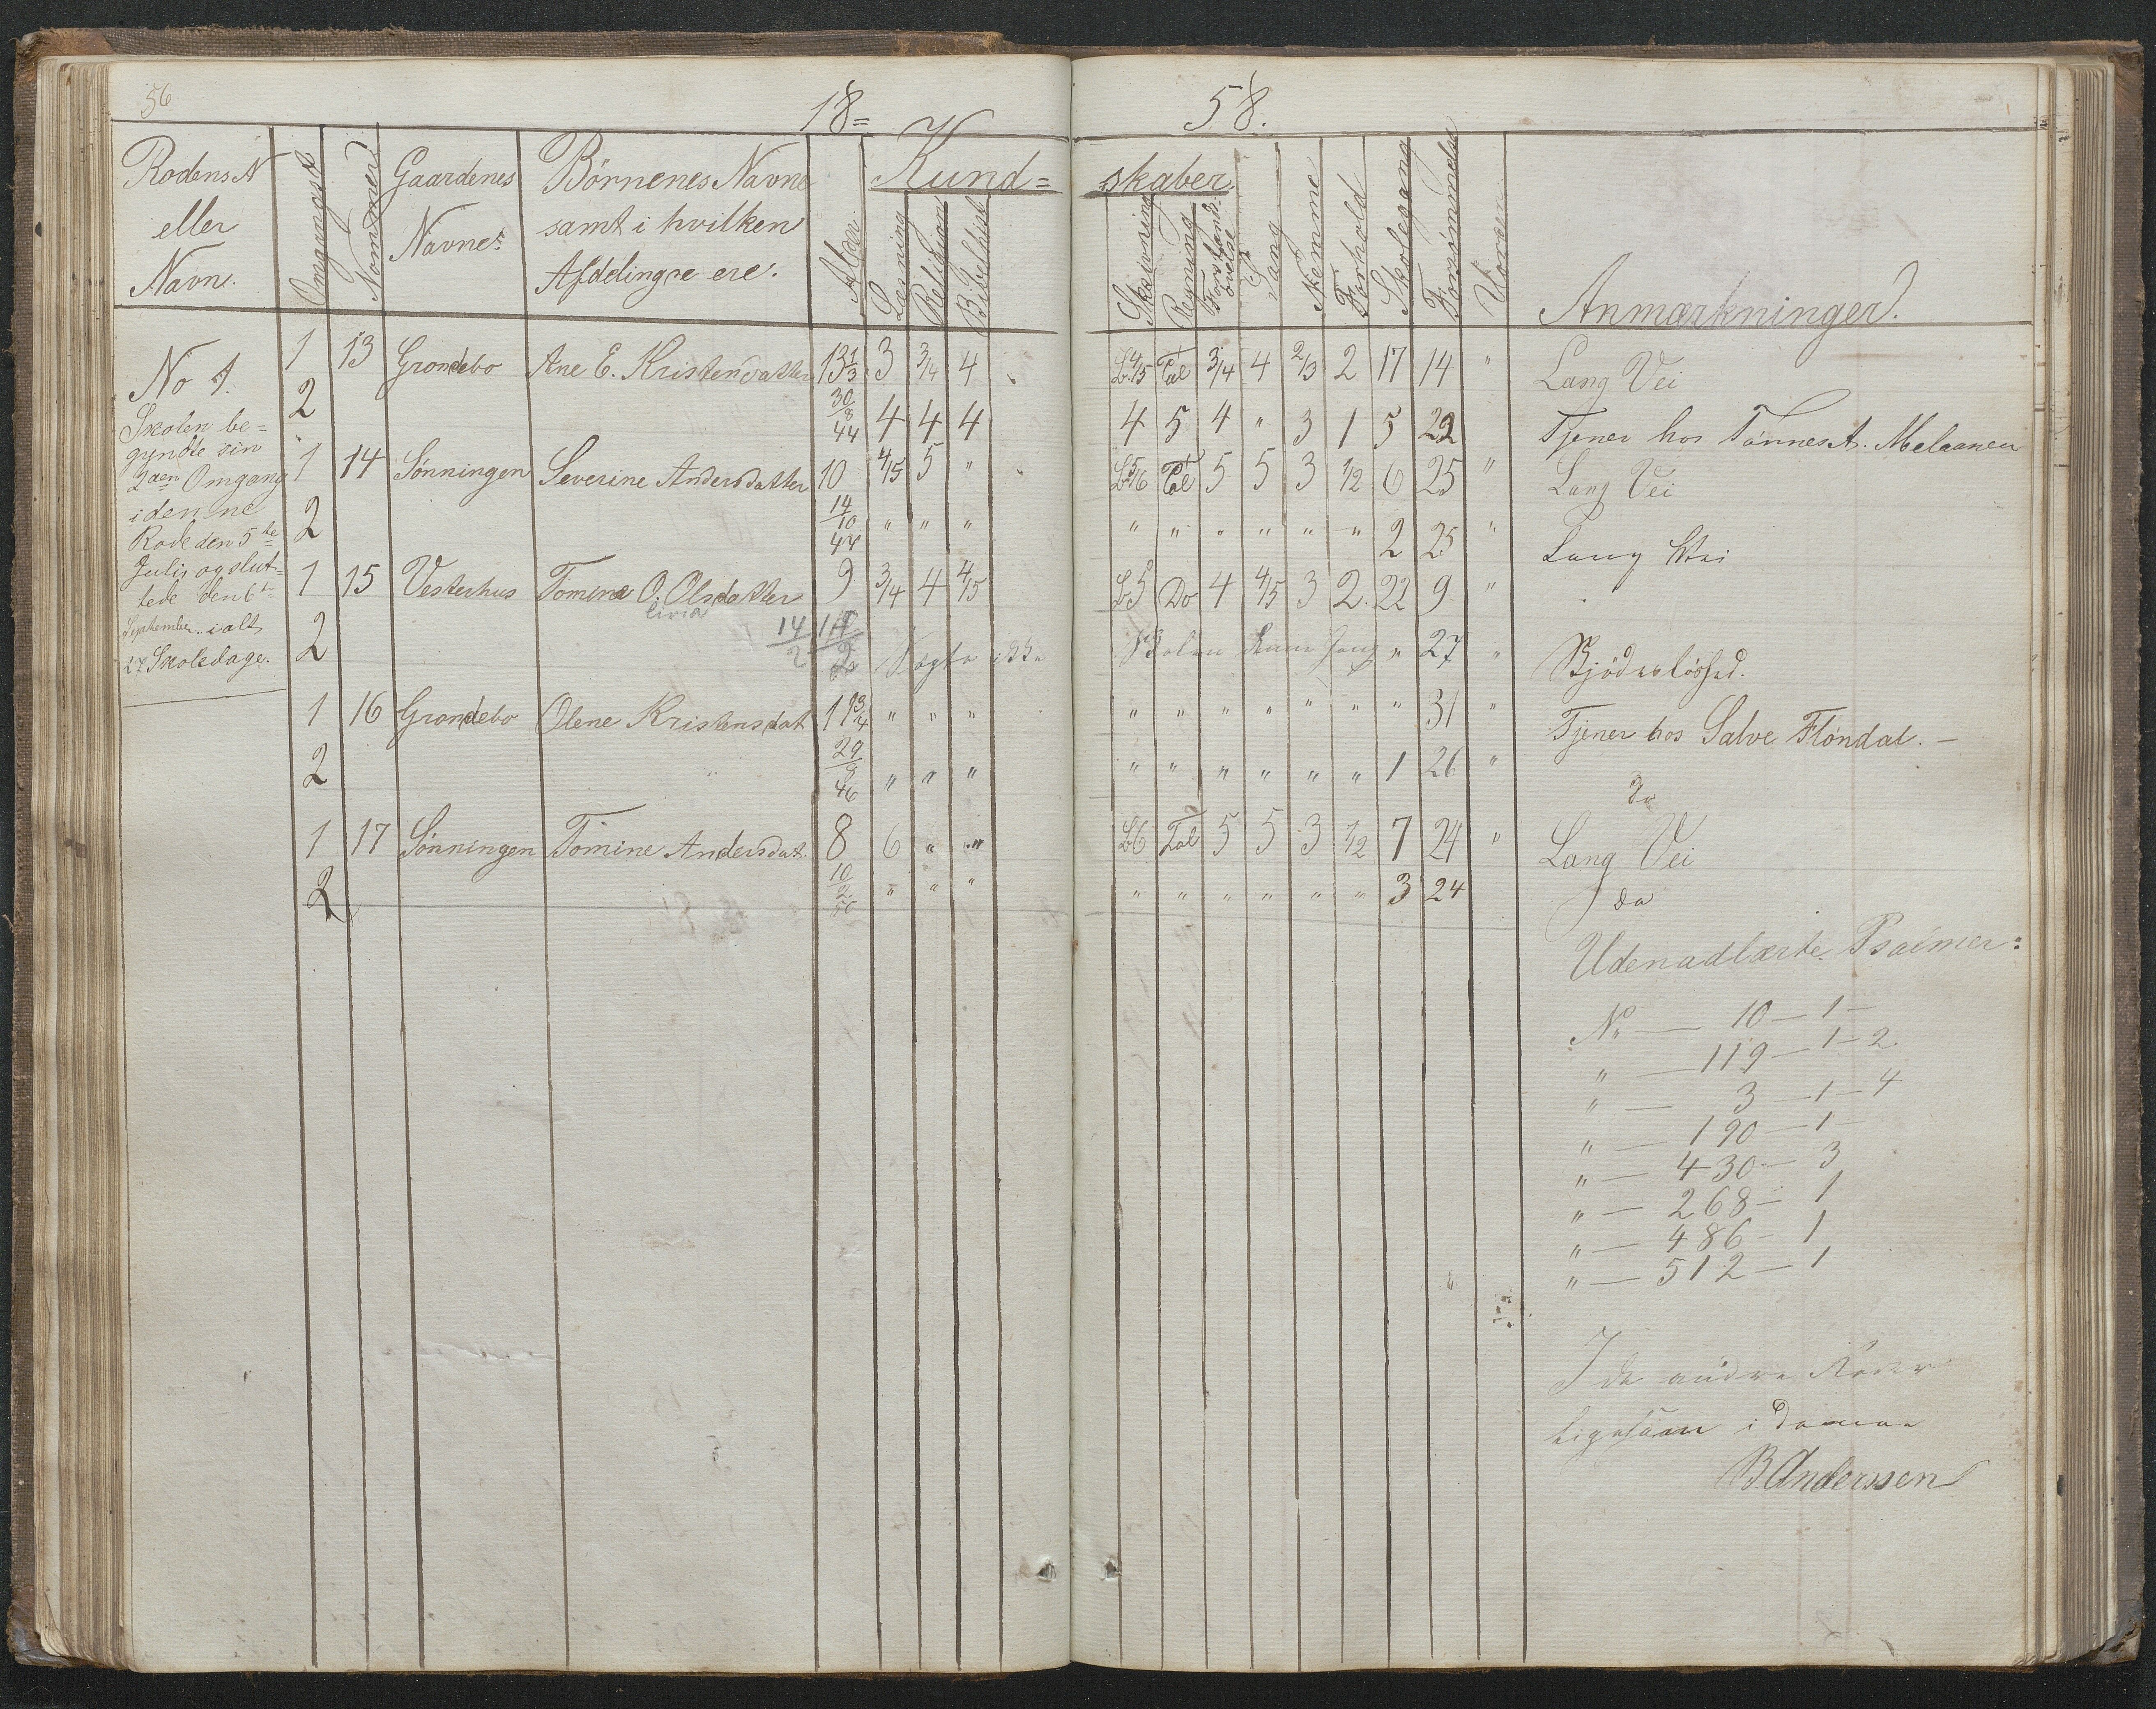 56
18= 58.
Rodens N
eller
Navn.
Omgangst
Nommer
Gaardenes
Navne
Børnenes Navne
samt i hvilken
Afdelinger ere.
Alder
Kund= skaber
Læsning
Religion
Bibelhist
Skrivning
Regning
Forstands-
øvelse
Sang
Nemme
Forhold
Skolegang
Forsømmelse
Anmærkninger.
No 1.
Skolen be=
gyndte sin
2den Omgang
i denne
Rode den 5te
Juli og slut=
tede den 6te
September ialt
27 Skoledage.
1 13 Grondebo Ane E. Kristensdatter 13 1/3 3 3/4 4 L 4/5 Tal 3/4 4 2/3 2 17 14 " Lang Vei
2 30/8 44 4 4 4 4 5 4 " 3 1 5 22 " Tjener hos Tønnes A. Melaanen
1 14 Sønningen Severine Andersdatter 10 4/5 5 " L 5/6 Tal 5 5 3 1/2 6 25 " Lang Vei
2 14/10 47 " " " " " " " " " 2 25 " Lang Vei
1 15 Vesterhus Tomine O. Olsdatter 9 3/4 4 4/5 L5 Do 4 4/5 3 2 22 9 "
livia
2 14/2 Søgte ikke Skolen denne Gang " 27 "
1 16 Grondebo Olene Kristensdat 11 3/4 " " " " " " " " " " 31 " Tjener hos Salve Fløndal. —
2 29/8 46 " " " " " " " " " 1 26 " Do
1 17 Sønningen Tomine Andersdat. 8 6 " " L6 Tal 5 5 3 1/2 7 24 " Lang Vei
2 10/2 50 " " " " " " " " " 3 24 do
Udenadlærte Psalmer:
No — 10 — 1 —
" — 119 — 1 — 2.
" — 3 — 1 — 4
" — 190 — 1 —
" — 430 — 3
" — 268 — 1
" — 486 — 1
" — 512 — 1
I de andre Roder
ligesaa i denne
B. Anderssen